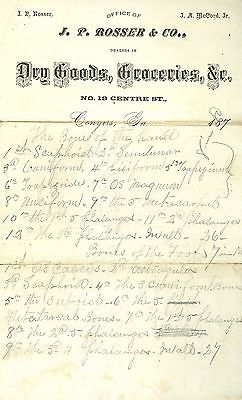 OFFICE OF
J. P. Rosser. J. A. McCord, Jr.
J. P. ROSSER & CO.,
DEALERS IN
Dry Goods, Groceries, &c.
NO. 19 CENTRE ST.,
Conyers, Ga. 187
The Bones of the hand
1st Scaphoid 2d Semilunar
3d Cuneiform 4th Pisiform 5th Trapezium
6th Trapezoides 7th Os Magnum
8th Unciform 9th the 5 Metacarpal
10th the 1st 5 phalanges 11th 2d 4 phalanges
12th the 3d phalanges 26
Bones of the Foot 7 in
1st Os Calcis 2d Astragalus
3d Scaphoid 4th The 3 Cuneiform Bones
5th the Cuboid 6th the 5
Metatarsal Bones 7th The 1st 5 phalanges
8th The 2d 5 phalanges
9th The 3d 4 phalanges 27